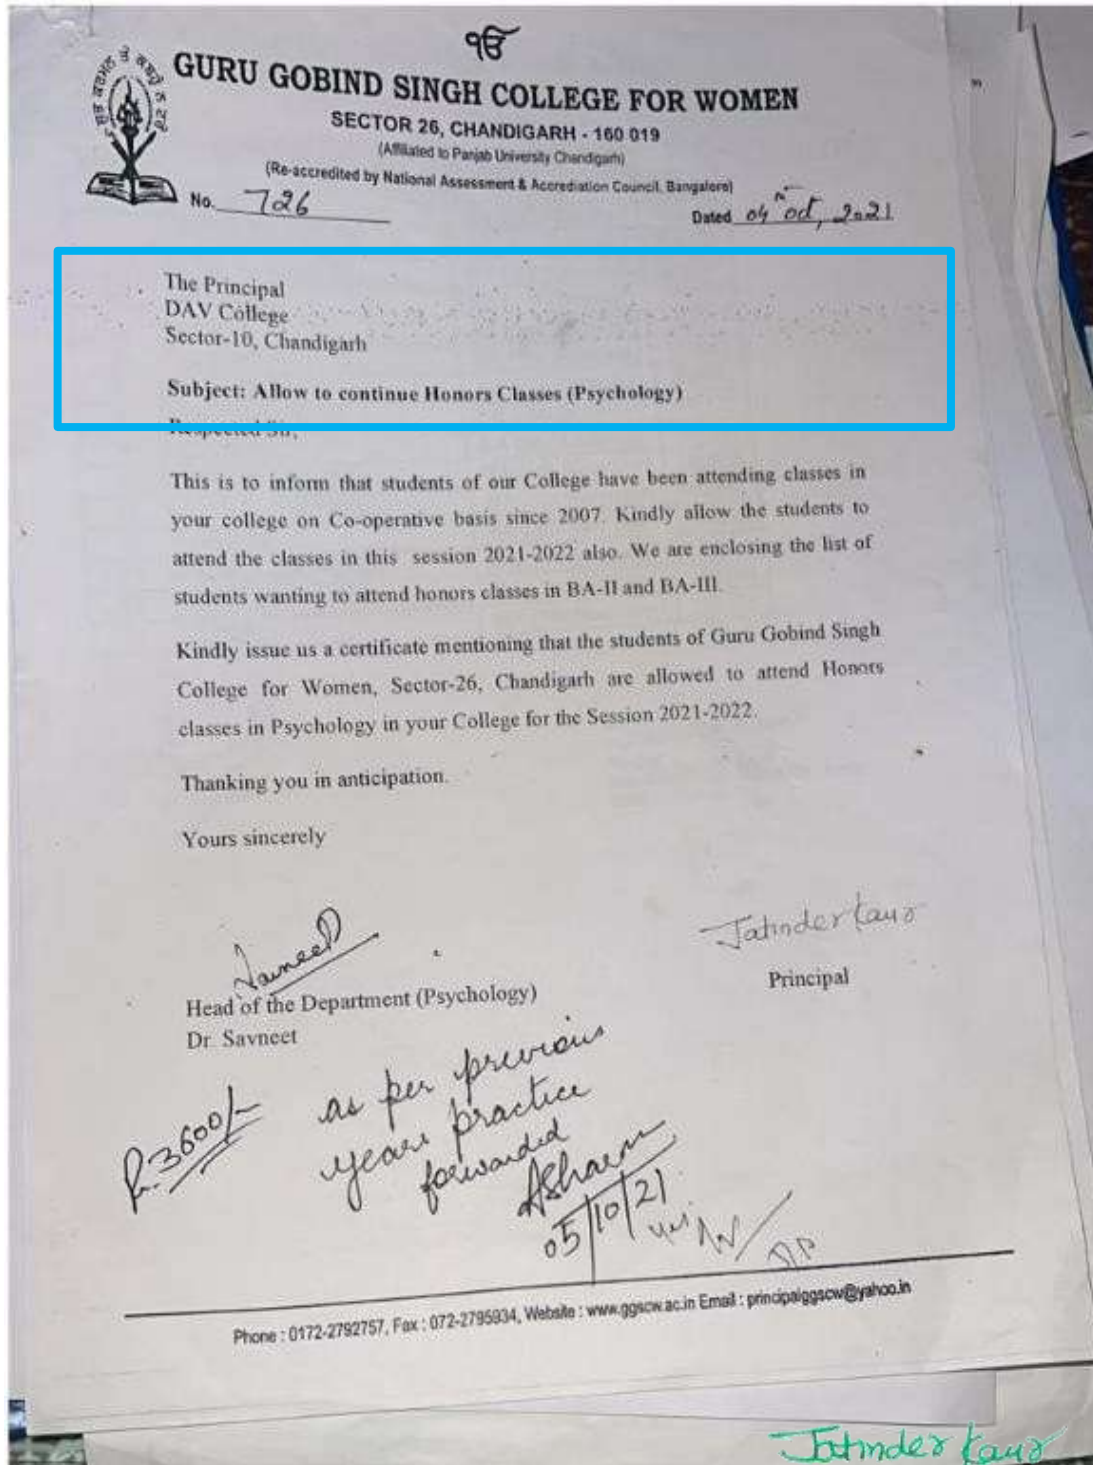 ੴ
GURU GOBIND SINGH COLLEGE FOR WOMEN
SECTOR 26, CHANDIGARH - 160 019
(Affiliated to Panjab University Chandigarh)
(Re-accredited by National Assessment & Accrediation Council, Bangalore)
No. 726
Dated 04 Oct, 2021
The Principal
DAV College
Sector-10, Chandigarh
Subject: Allow to continue Honors Classes (Psychology)
Respected Sir,
This is to inform that students of our College have been attending classes in
your college on Co-operative basis since 2007. Kindly allow the students to
attend the classes in this session 2021-2022 also. We are enclosing the list of
students wanting to attend honors classes in BA-II and BA-III.
Kindly issue us a certificate mentioning that the students of Guru Gobind Singh
College for Women, Sector-26, Chandigarh are allowed to attend Honors
classes in Psychology in your College for the Session 2021-2022.
Thanking you in anticipation.
Yours sincerely
Savneet
Jatinder Kaur
Head of the Department (Psychology)
Principal
Dr. Savneet
R.3600/-
as per previous
years practice
forwarded
ASharm
05/10/21
Phone : 0172-2792757, Fax : 072-2795934, Website : www.ggscw.ac.in Email : principalggscw@yahoo.in
Jatinder Kaur